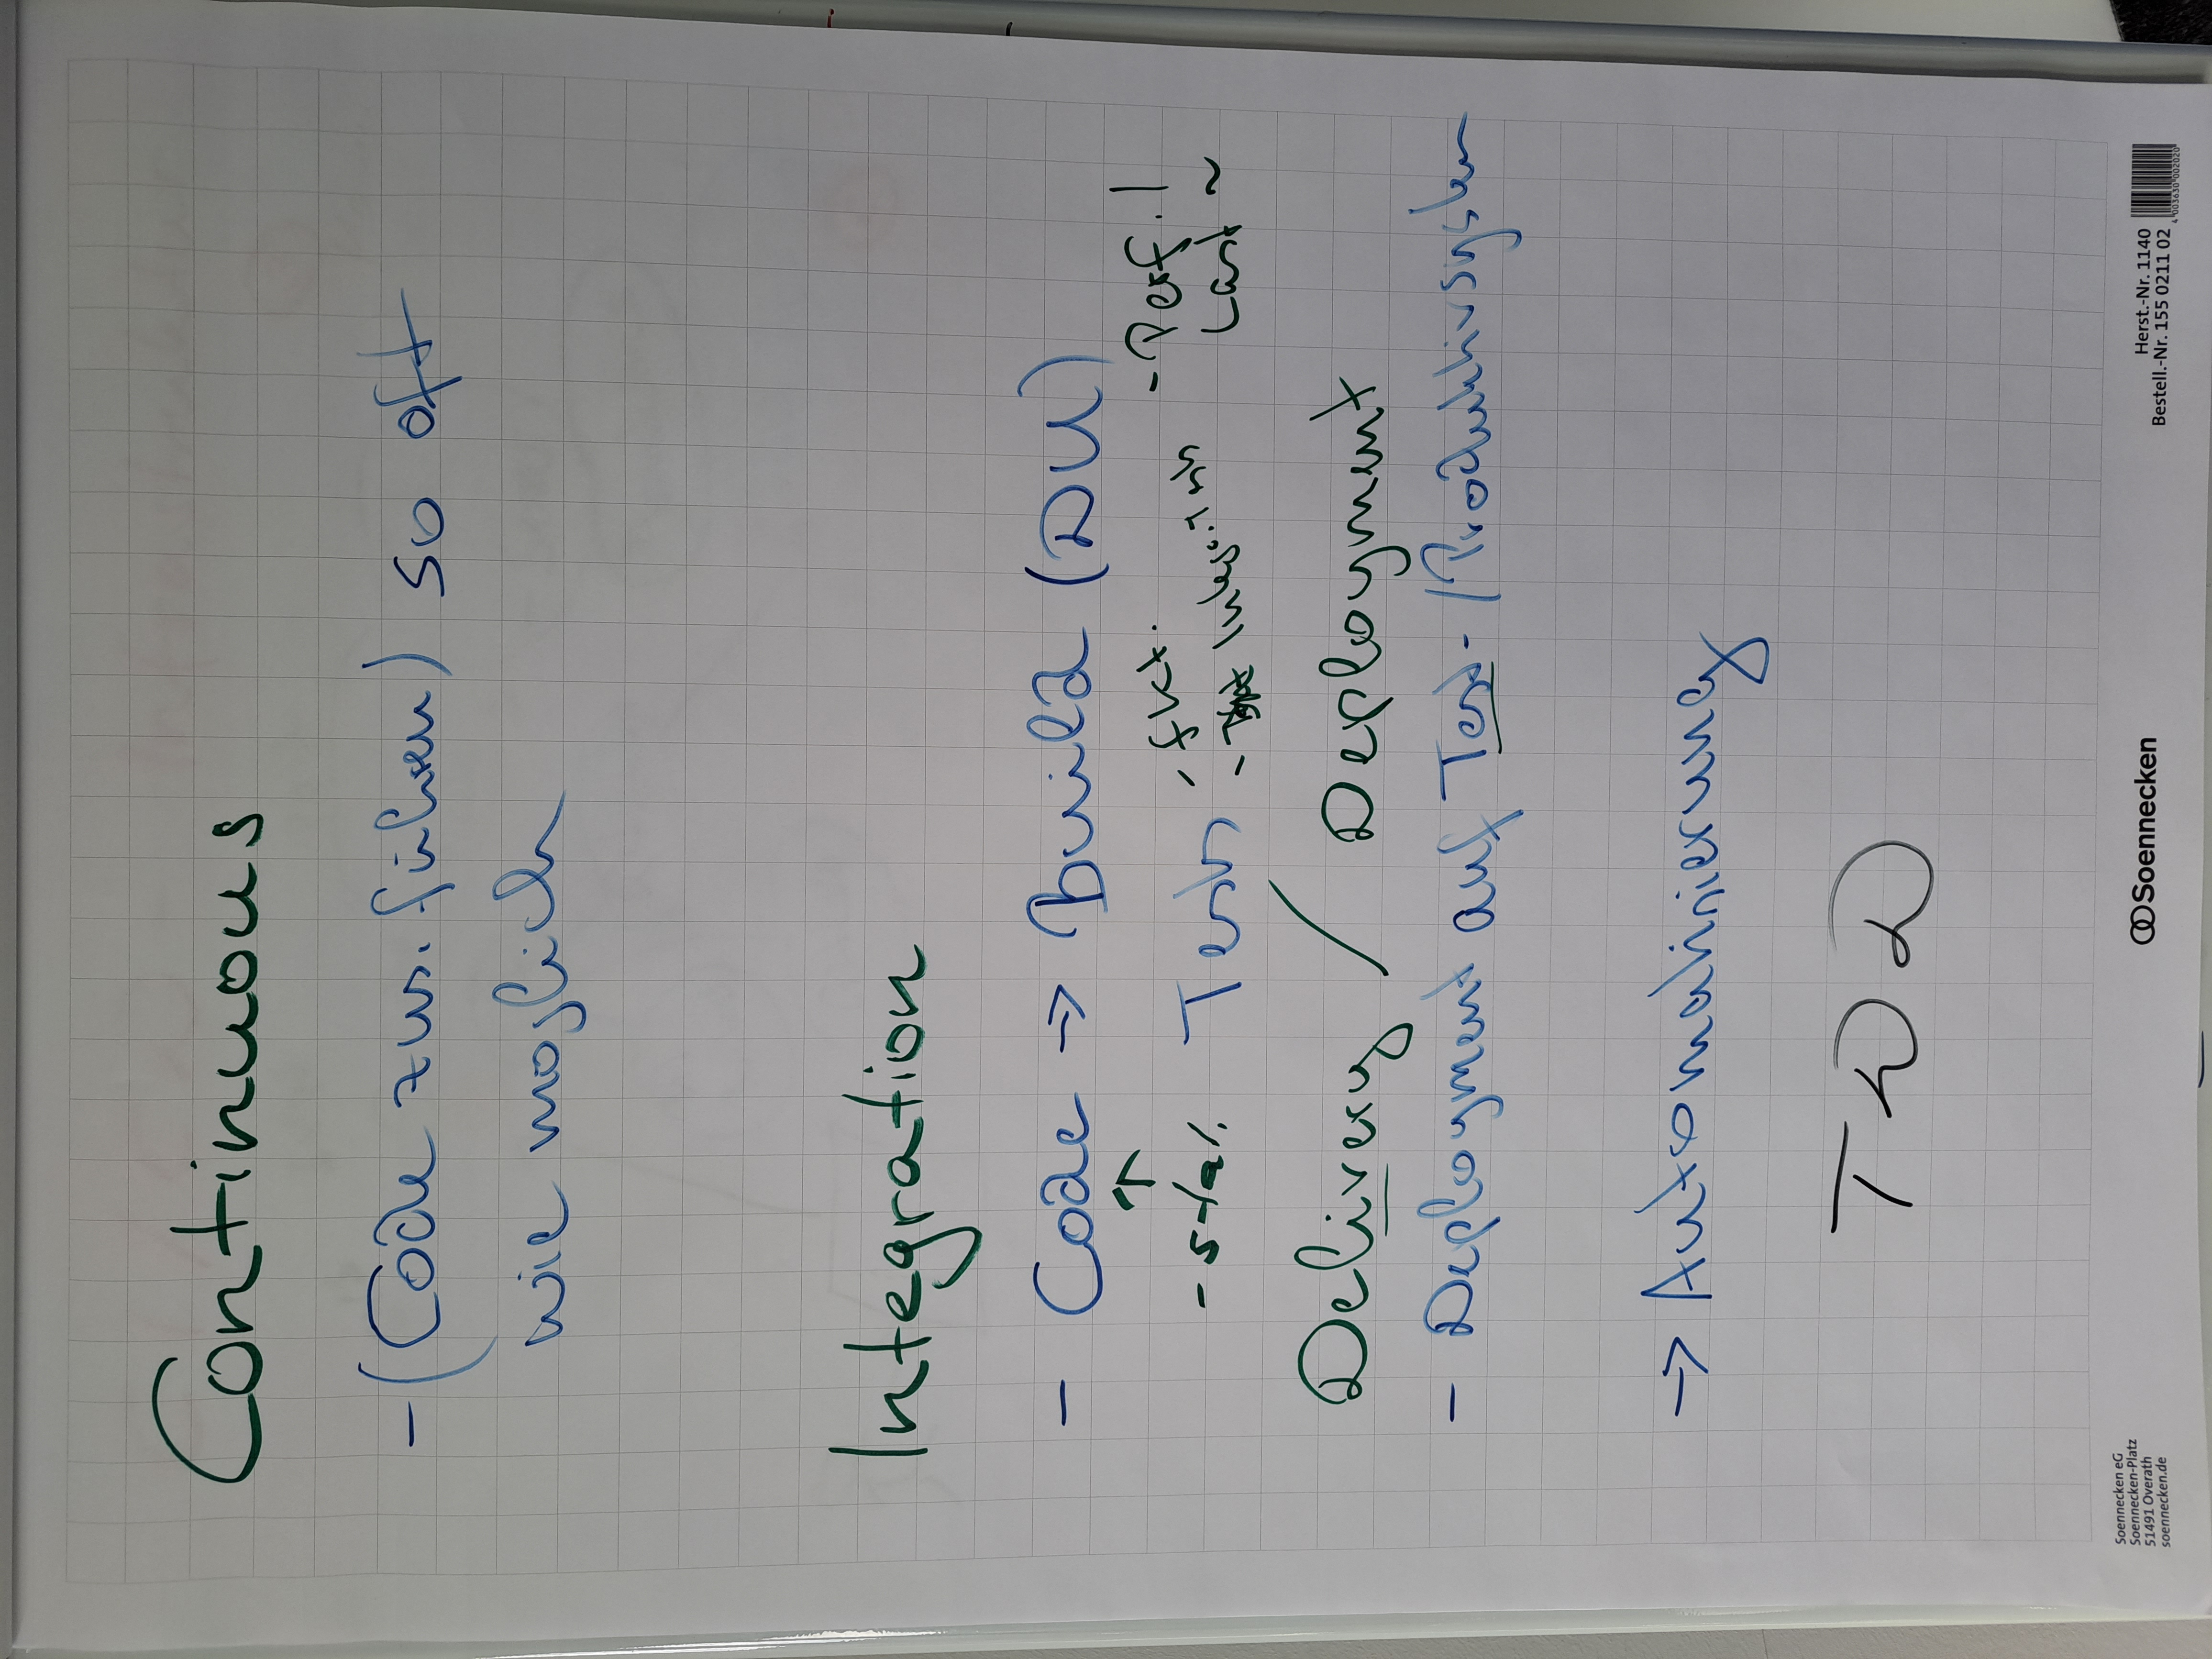 Continuous
- (Code zus. führen) so oft
wie moglich
Integration
- Code → Build (DU)
↑
- stat. Tests - fkt. - Perf. /
- Integr. Tests Last ~
Delivery / Deployment
- Deployment auf Test- / Produktivsystem
→ Automatisierung
TDD
Soennecken eG
Soennecken-Platz
51491 Overath
soennecken.de
Soennecken
Herst.-Nr. 1140
Bestell.-Nr. 155 0211 02
4 003630 002020